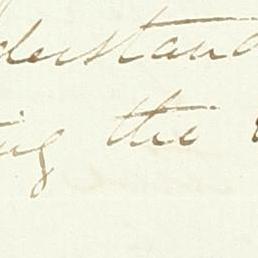 derstand
ing the